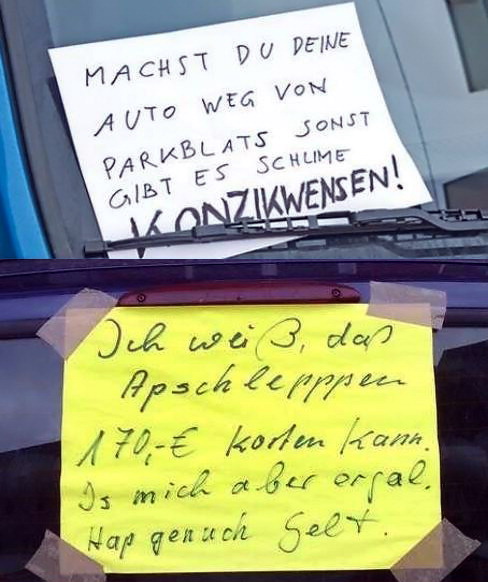 MACHST DU DEINE
AUTO WEG VON
PARKBLATS SONST
GIBT ES SCHLIME
KONZIKWENSEN!
Ich weiß, daß
Apschlepppen
170,-€ kosten kann.
Is mich aber orgal.
Hap genuch Gelt.